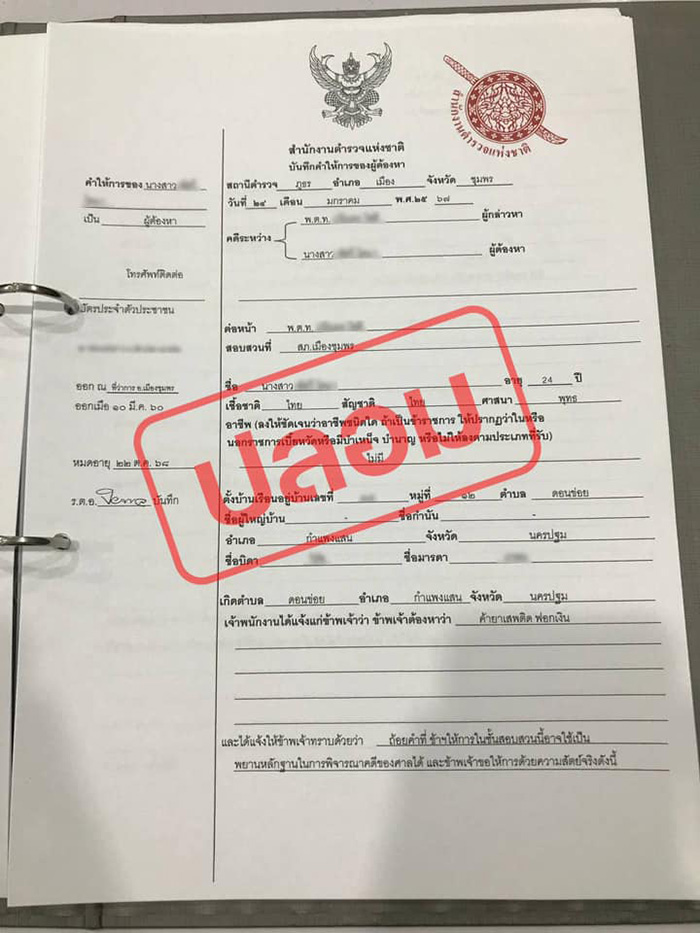 สำนักงานตำรวจแห่งชาติ
สำนักงานตำรวจแห่งชาติ
บันทึกคำให้การของผู้ต้องหา
คำให้การของ นางสาว
เป็น ผู้ต้องหา
โทรศัพท์ติดต่อ
บัตรประจำตัวประชาชน
ออก ณ ที่ว่าการ อ.เมืองชุมพร
ออกเมื่อ ๑๐ มี.ค. ๖๐
หมดอายุ ๒๒ ต.ค. ๖๘
ร.ต.อ. บันทึก
สถานีตำรวจ ภูธร อำเภอ เมือง จังหวัด ชุมพร
วันที่ ๒๔ เดือน มกราคม พ.ศ.๒๕ ๖๗
พ.ต.ท. ผู้กล่าวหา
คดีระหว่าง
นางสาว ผู้ต้องหา
ต่อหน้า พ.ต.ท.
สอบสวนที่ สภ.เมืองชุมพร
ชื่อ นางสาว อายุ 24 ปี
เชื้อชาติ ไทย สัญชาติ ไทย ศาสนา พุทธ
อาชีพ (ลงให้ชัดเจนว่าอาชีพชนิดใด ถ้าเป็นข้าราชการ ให้ปรากฏว่าในหรือ
นอกราชการเบี้ยหวัดหรือมีบำเหน็จ บำนาญ หรือไม่ให้ลงตามประเภทที่รับ)
ไม่มี
ตั้งบ้านเรือนอยู่บ้านเลขที่ หมู่ที่ ๑๒ ตำบล ดอนข่อย
ชื่อผู้ใหญ่บ้าน - ชื่อกำนัน -
อำเภอ กำแพงแสน จังหวัด นครปฐม
ชื่อบิดา ชื่อมารดา
เกิดตำบล ดอนข่อย อำเภอ กำแพงแสน จังหวัด นครปฐม
เจ้าพนักงานได้แจ้งแก่ข้าพเจ้าว่า ข้าพเจ้าต้องหาว่า ค้ายาเสพติด ฟอกเงิน
และได้แจ้งให้ข้าพเจ้าทราบด้วยว่า ถ้อยคำที่ ข้าฯให้การในชั้นสอบสวนนี้อาจใช้เป็น
พยานหลักฐานในการพิจารณาคดีของศาลได้ และข้าพเจ้าขอให้การด้วยความสัตย์จริงดังนี้
ปลอม